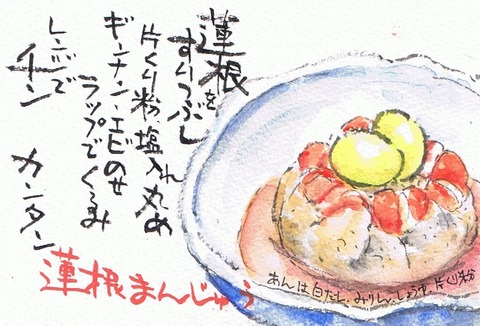 蓮根を
すりつぶし
片くり粉塩入れ丸め
ギンナン・エビのせ
ラップでくるみ
レンジで
チン
カンタン
蓮根まんじゅう
あんは白だし、みりん、しょうゆ、片くり粉